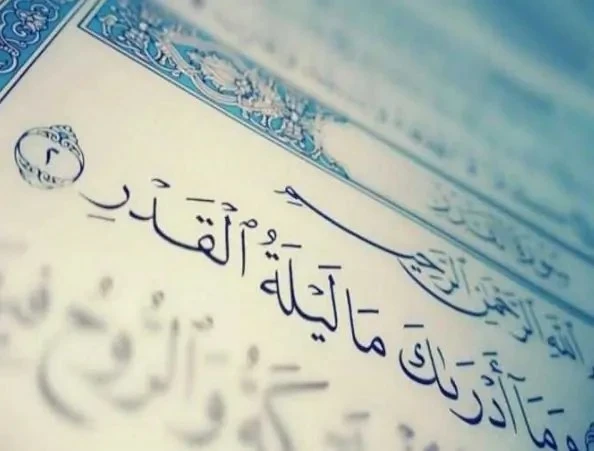 سورة القدر
الله الرحمن الرحيم
وَمَآ أَدْرَىٰكَ مَا لَيْلَةُ ٱلْقَدْرِ ٢
كَةُ وَٱلرُّوحُ فِيهَا